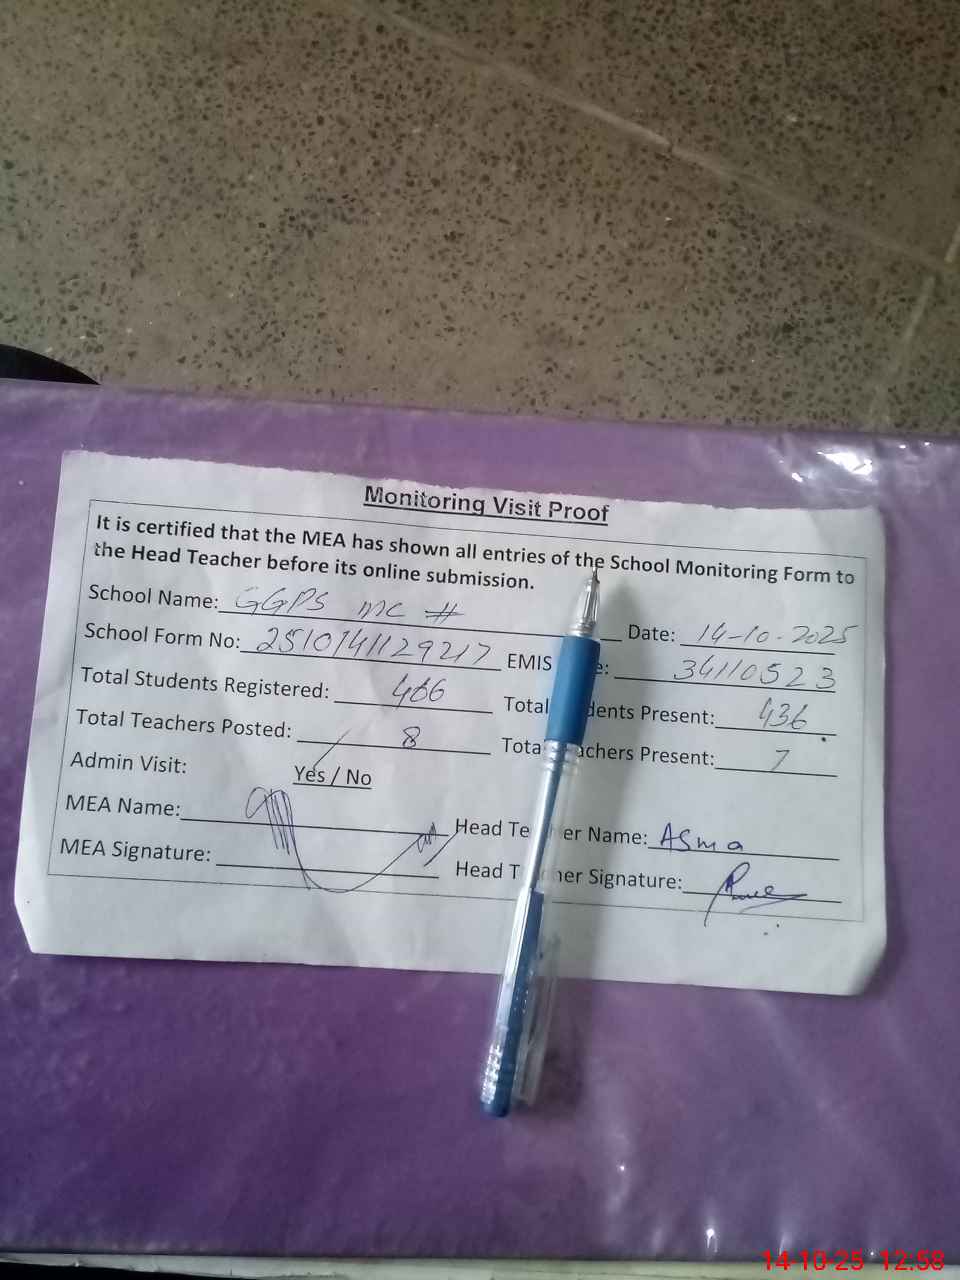 Monitoring Visit Proof
It is certified that the MEA has shown all entries of the School Monitoring Form to
the Head Teacher before its online submission.
School Name: GGPS MC # Date: 14-10-2025
School Form No: 2510141129217 EMIS e: 34110523
Total Students Registered: 466 Total dents Present: 436
Total Teachers Posted: 8 Tota achers Present: 7
Admin Visit: Yes / No
MEA Name: Head Te er Name: Asma
MEA Signature: Head T her Signature:
14-10-25 12:58